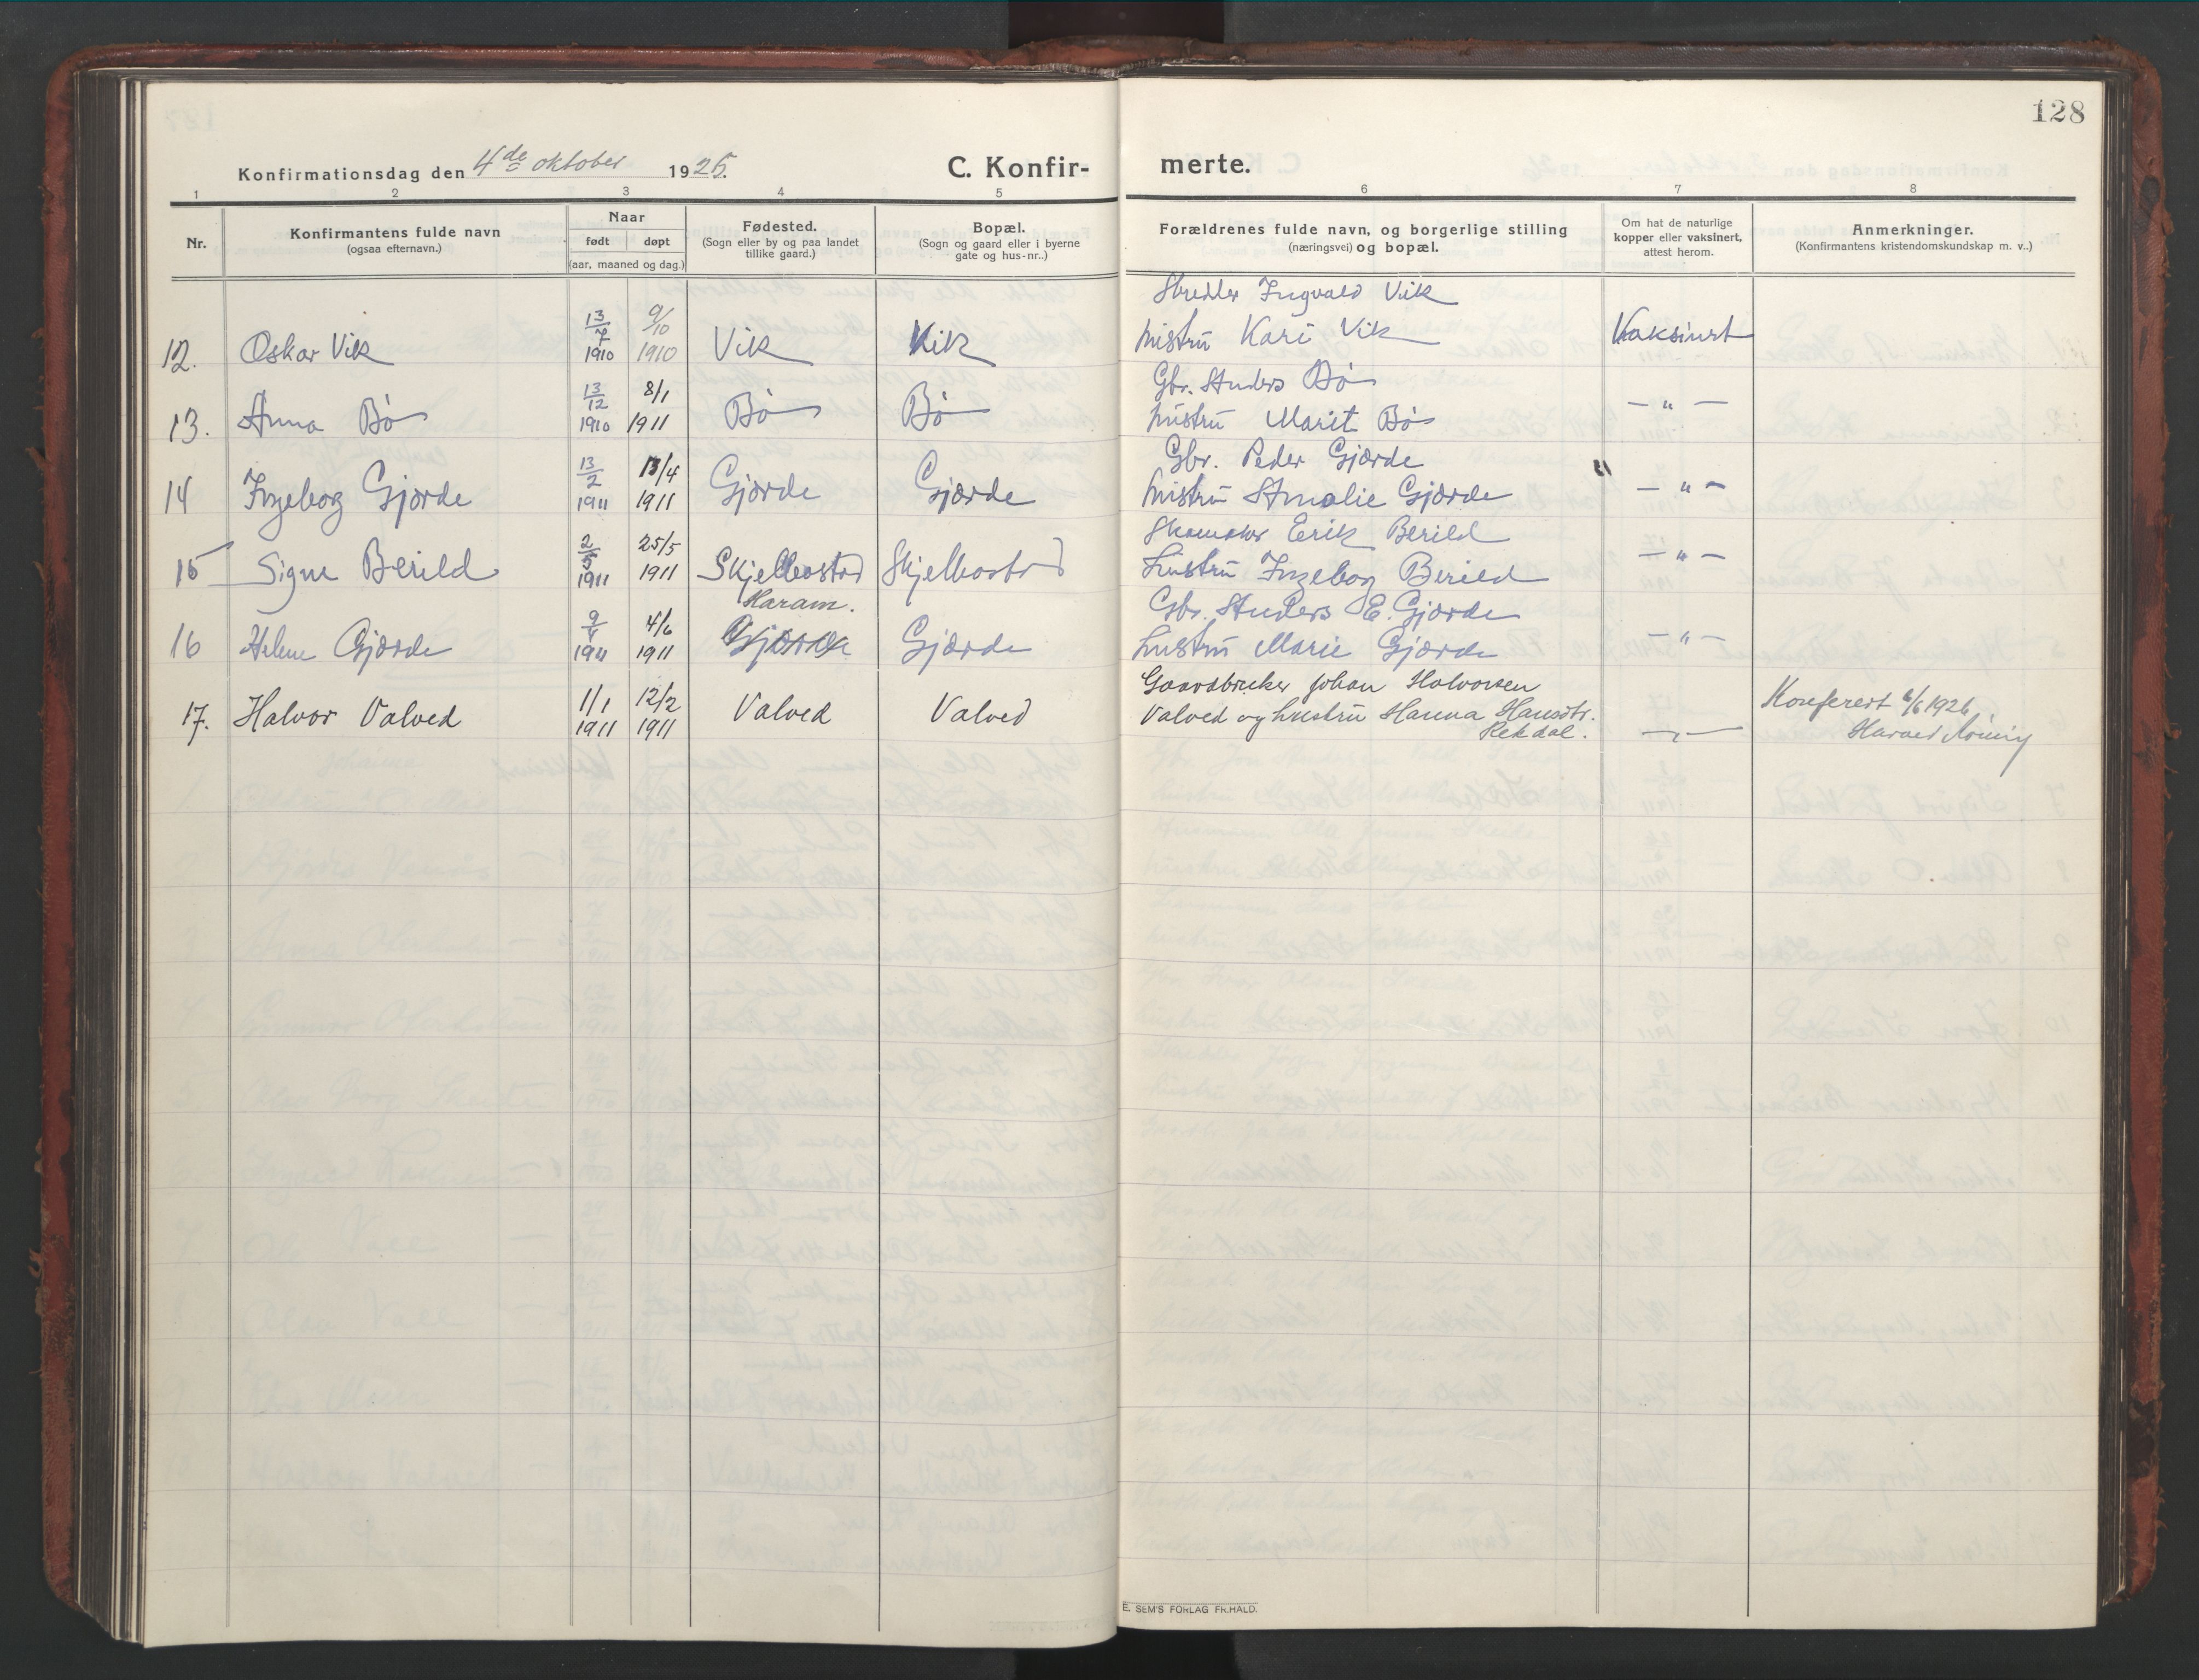 128
Konfirmationsdag den 4de oktober 1925.
C. Konfir-
merte.
1 2 3 4 5 6 7 8
Nr.
Konfirmantens fulde navn
(ogsaa efternavn.)
Naar
født døpt
(aar, maaned og dag.)
Fødested.
(Sogn eller by og paa landet
tillike gaard.)
Bopæl.
(Sogn og gaard eller i byerne
gate og hus-nr..)
Forældrenes fulde navn, og borgerlige stilling
(næringsvei) og bopæl.
Om hat de naturlige
kopper eller vaksinert,
attest herom.
Anmerkninger.
(Konfirmantens kristendomskundskap m. v..)
Ingvald Vik
12. Oskar Vik 13/7 1910 9/10 1910 Vik Vik hustru Kari Vik Vaksinert
Gbr. Anders Bø
13. Anna Bø 13/12 1910 8/1 1911 Bø Bø hustru Marit Bø — " —
Gbr. Peder Gjørde
14 Ingeborg Gjørde 13/2 1911 13/4 1911 Gjørde Gjørde hustru Amalie Gjørde — " —
Skomaker Erik Berild
15 Signe Berild 2/5 1911 25/5 1911 Skjelbostad Skjelbostad hustru Ingeborg Berild — " —
Haram.
Gbr. Anders E. Gjørde
16 Helene Gjørde 1911 4/6 1911 Gjørde Gjørde hustru Marie Gjørde — " —
Gaardbruker Johan Halvorsen
17. Halvor Valved 1/1 1911 12/2 1911 Valved Valved Valved og hustru Hanna Hansdtr. Konferert 6/6 1926
Rekdal. — " — Harald
E. SEM'S FORLAG FR.HALD.